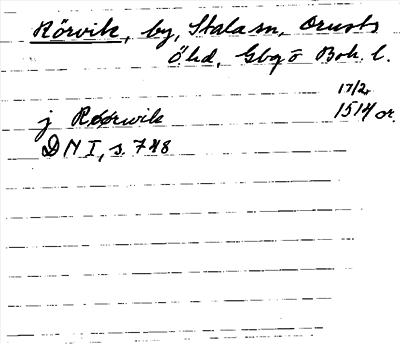 Rörvik, by, Stala sn, Orusts
Öhd, Gbg o Boh. l.
17/2
j Røørwik 1514 or.
DN I, s. 748